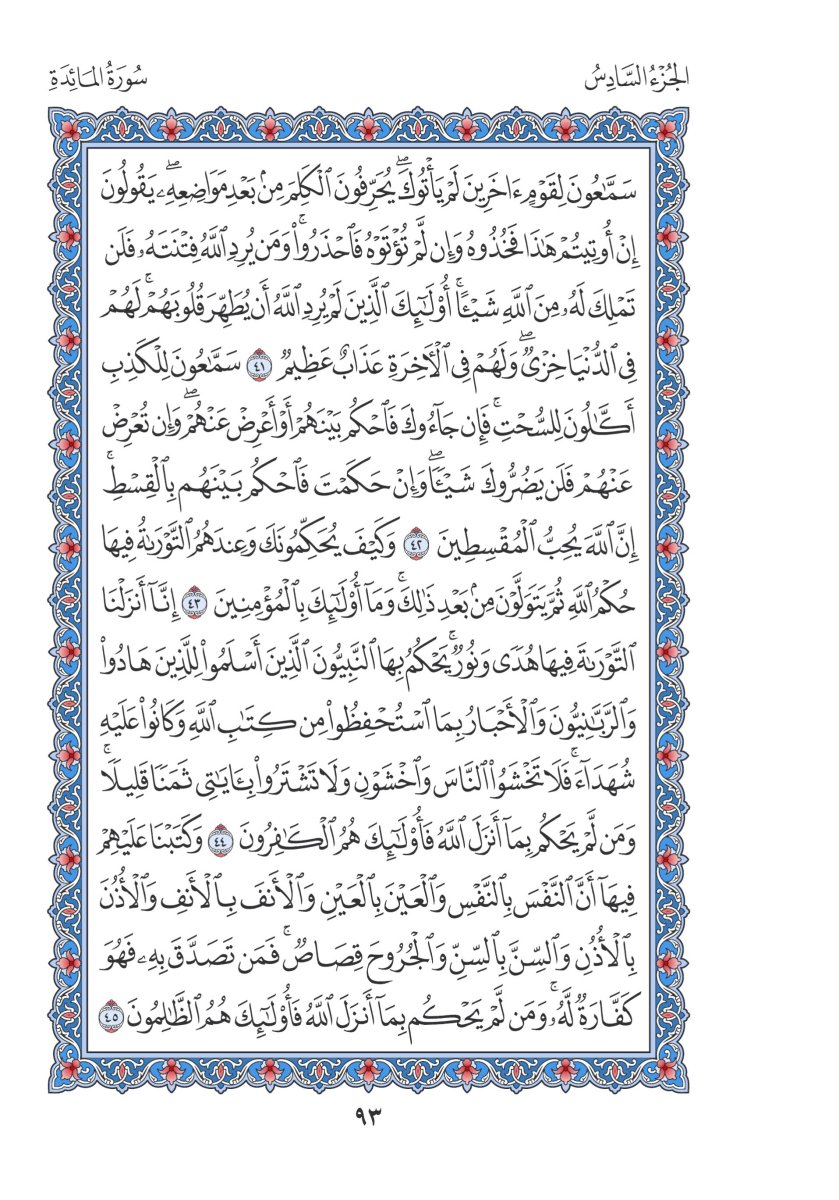 الجُزْءُ السَّادِسُ
سُورَةُ المَائِدَةِ
سَمَّٰعُونَ لِقَوْمٍ ءَاخَرِينَ لَمْ يَأْتُوكَۖ يُحَرِّفُونَ ٱلْكَلِمَ مِنۢ بَعْدِ مَوَاضِعِهِۦۖ يَقُولُونَ
إِنْ أُوتِيتُمْ هَٰذَا فَخُذُوهُ وَإِن لَّمْ تُؤْتَوْهُ فَٱحْذَرُوا۟ۚ وَمَن يُرِدِ ٱللَّهُ فِتْنَتَهُۥ فَلَن
تَمْلِكَ لَهُۥ مِنَ ٱللَّهِ شَيْـًٔاۚ أُو۟لَٰٓئِكَ ٱلَّذِينَ لَمْ يُرِدِ ٱللَّهُ أَن يُطَهِّرَ قُلُوبَهُمْۚ لَهُمْ
فِى ٱلدُّنْيَا خِزْىٌۖ وَلَهُمْ فِى ٱلْـَٔاخِرَةِ عَذَابٌ عَظِيمٌ ٤١ سَمَّٰعُونَ لِلْكَذِبِ
أَكَّٰلُونَ لِلسُّحْتِۚ فَإِن جَآءُوكَ فَٱحْكُم بَيْنَهُمْ أَوْ أَعْرِضْ عَنْهُمْۖ وَإِن تُعْرِضْ
عَنْهُمْ فَلَن يَضُرُّوكَ شَيْـًٔاۖ وَإِنْ حَكَمْتَ فَٱحْكُم بَيْنَهُم بِٱلْقِسْطِۚ
إِنَّ ٱللَّهَ يُحِبُّ ٱلْمُقْسِطِينَ ٤٢ وَكَيْفَ يُحَكِّمُونَكَ وَعِندَهُمُ ٱلتَّوْرَىٰةُ فِيهَا
حُكْمُ ٱللَّهِ ثُمَّ يَتَوَلَّوْنَ مِنۢ بَعْدِ ذَٰلِكَۚ وَمَآ أُو۟لَٰٓئِكَ بِٱلْمُؤْمِنِينَ ٤٣ إِنَّآ أَنزَلْنَا
ٱلتَّوْرَىٰةَ فِيهَا هُدًى وَنُورٌۚ يَحْكُمُ بِهَا ٱلنَّبِيُّونَ ٱلَّذِينَ أَسْلَمُوا۟ لِلَّذِينَ هَادُوا۟
وَٱلرَّبَّٰنِيُّونَ وَٱلْأَحْبَارُ بِمَا ٱسْتُحْفِظُوا۟ مِن كِتَٰبِ ٱللَّهِ وَكَانُوا۟ عَلَيْهِ
شُهَدَآءَۚ فَلَا تَخْشَوُا۟ ٱلنَّاسَ وَٱخْشَوْنِ وَلَا تَشْتَرُوا۟ بِـَٔايَٰتِى ثَمَنًا قَلِيلًاۚ
وَمَن لَّمْ يَحْكُم بِمَآ أَنزَلَ ٱللَّهُ فَأُو۟لَٰٓئِكَ هُمُ ٱلْكَٰفِرُونَ ٤٤ وَكَتَبْنَا عَلَيْهِمْ
فِيهَآ أَنَّ ٱلنَّفْسَ بِٱلنَّفْسِ وَٱلْعَيْنَ بِٱلْعَيْنِ وَٱلْأَنفَ بِٱلْأَنفِ وَٱلْأُذُنَ
بِٱلْأُذُنِ وَٱلسِّنَّ بِٱلسِّنِّ وَٱلْجُرُوحَ قِصَاصٌۚ فَمَن تَصَدَّقَ بِهِۦ فَهُوَ
كَفَّارَةٌ لَّهُۥۚ وَمَن لَّمْ يَحْكُم بِمَآ أَنزَلَ ٱللَّهُ فَأُو۟لَٰٓئِكَ هُمُ ٱلظَّٰلِمُونَ ٤٥
٩٣